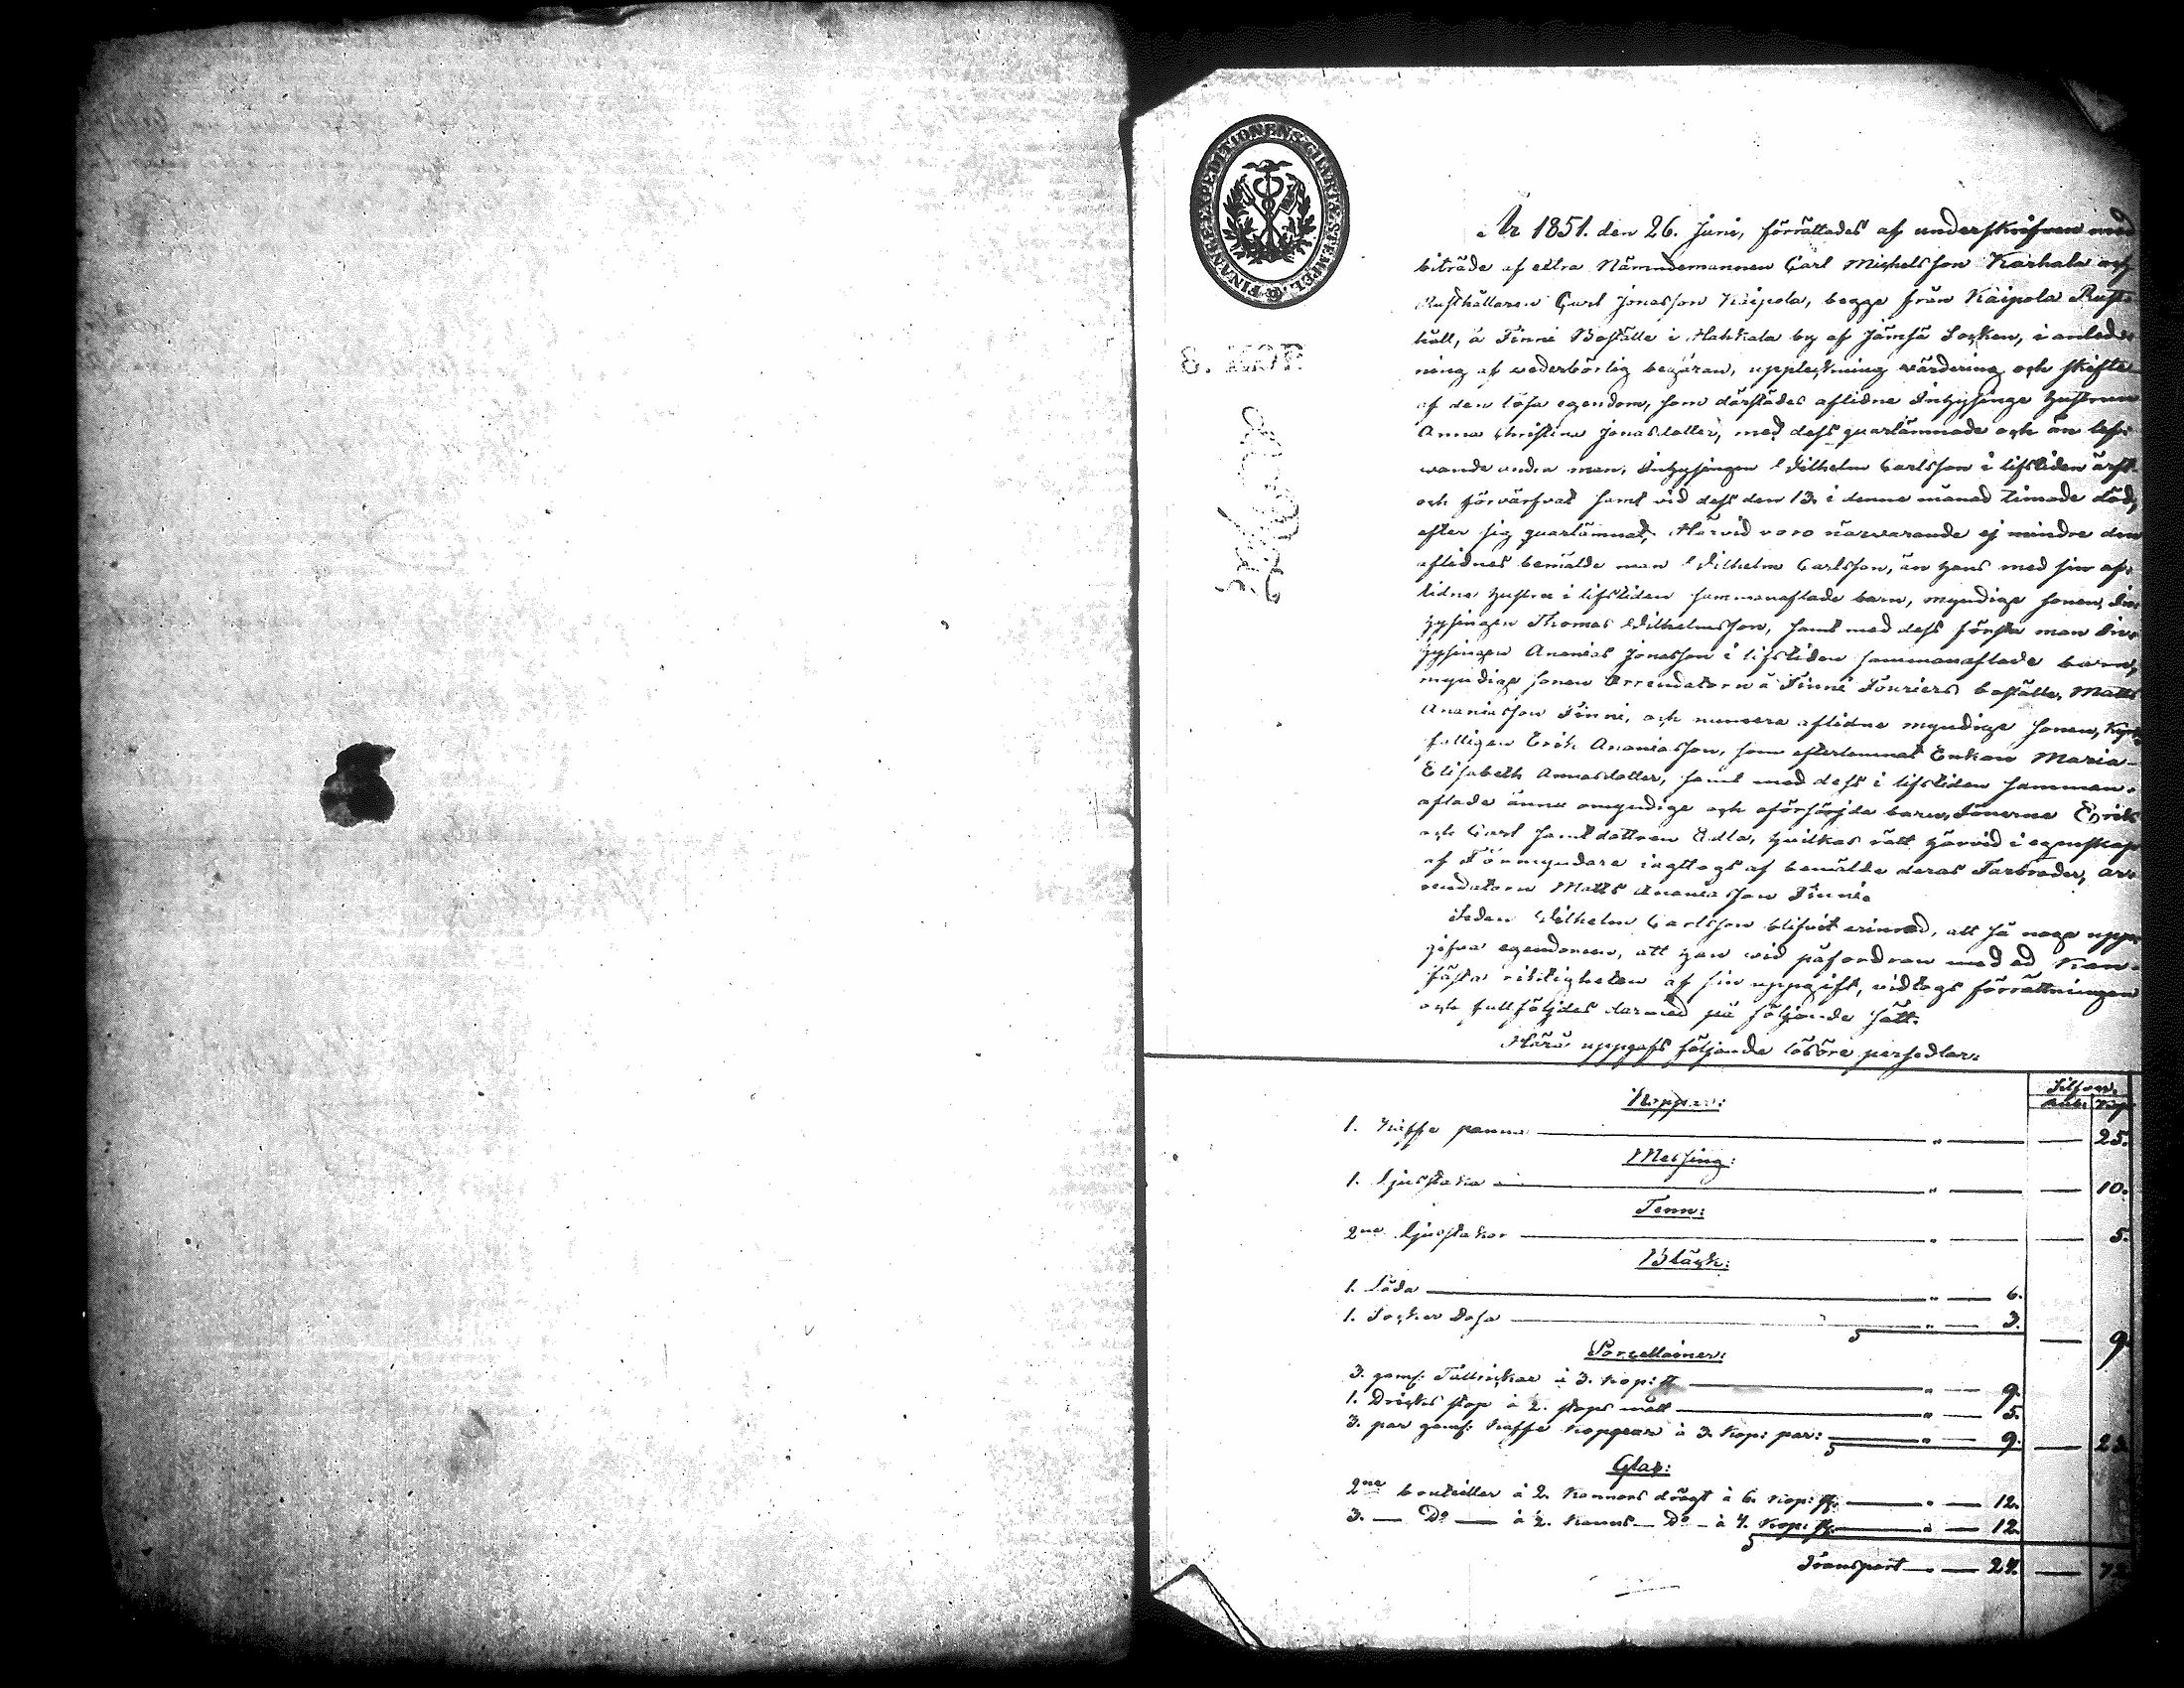 FINANCE EXPEDITIONENS CHARTÆ STEMPEL
År 1851. den 26. Juni, förrättades af underskrifven med
biträde af extra Nämndemannen Carl Michelsson Karhala och
Rusthållaren Carl Jonasson Kaipola, begge från Kaipola Rust-
håll, å Finni Boställe i Hahkala by af Jämsä Socken, i anled-
ning af wederbörlig begäran, uppteckning värdering och skifte
af den lösa egendom, som därstädes aflidne Inhysinge hustrun
Anna Christina Jonasdotter, med dess quarlämnade och än lef-
wande andra man, Inhysingen Wilhelm Carlsson i lifstiden ärft
och förvärfvat samt vid dess den 13. i denne månad timade död,
efter sig quarlämnat; Härvid voro närvarande ej mindre den
aflidnes bemälde man Wilhelm Carlsson, än hans med sin af-
lidne hustru i lifstiden sammanaflade barn, myndige sonen, In-
hysingen Thomas Wilhelmsson, samt med dess första man In-
hysingen Ananias Jonasson i lifstiden sammanaflade barn,
myndige sonen Arrendatorn å Finni Fouriers boställe, Matts
Ananiasson Finni, och numera aflidne myndige sonen,
Erik Ananiasson, som efterlemnat Enkan Maria
Elisabeth Annasdotter, samt med dess i lifstiden samman-
aflade ännu omyndige och oförsörjde barn, Sönerne Erik
och Carl samt dottren Edla, hvilkas rätt härvid i egenskap
af Förmyndare iagttogs af bemälde deras Farbroder, Ar-
rendatorn Matts Ananiasson Finni.
Sedan Wilhelm Carlsson blifvit erinrad, att så noga upp-
gifva egendomen, att han wid påfordran med ed kan
fästa riktigheten af sin uppgift, vidtogs förrättningen
och fullföljdes därmed på följande sätt.
Härå uppgafs följande lösöre persedlar:
Silfver.
Rub: Kop:
Koppar:
1. Kaffe panna — " — — 25.
Messing:
1. Ljusstaka — " — — 10.
Tenn:
2ne Ljusstakar — " — — 5.
Bläck:
1. Låda — " — 6.
1. Socker dosa — " — 3. — 9.
Porcellainer:
3. gaml: Tallrickar à 3. Kop: st — " — 9.
1. Dricks stop à 2. stops mått — " — 5.
3. par gaml: Kaffe Koppar à 3. Kop: par: — " — 9. — 23.
Glas:
2ne bouteiller à 2. Kannors drägt à 6. Kop: st. — " — 12.
3. — Do — à 2. Kanns — Do — à 4. Kop: st. — " — 12.
Transport — " — 24. — 72.